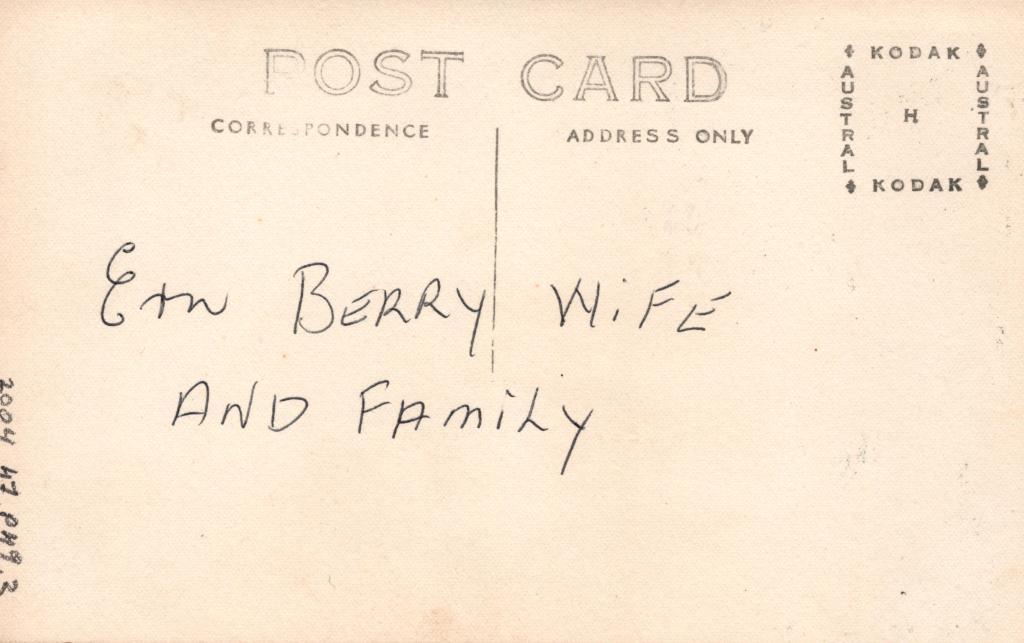 POST CARD
CORRESPONDENCE
ADDRESS ONLY
KODAK
AUSTRAL
H
AUSTRAL
KODAK
BERRY WiFE
AND FAmiLy
2004 47 PH9.3